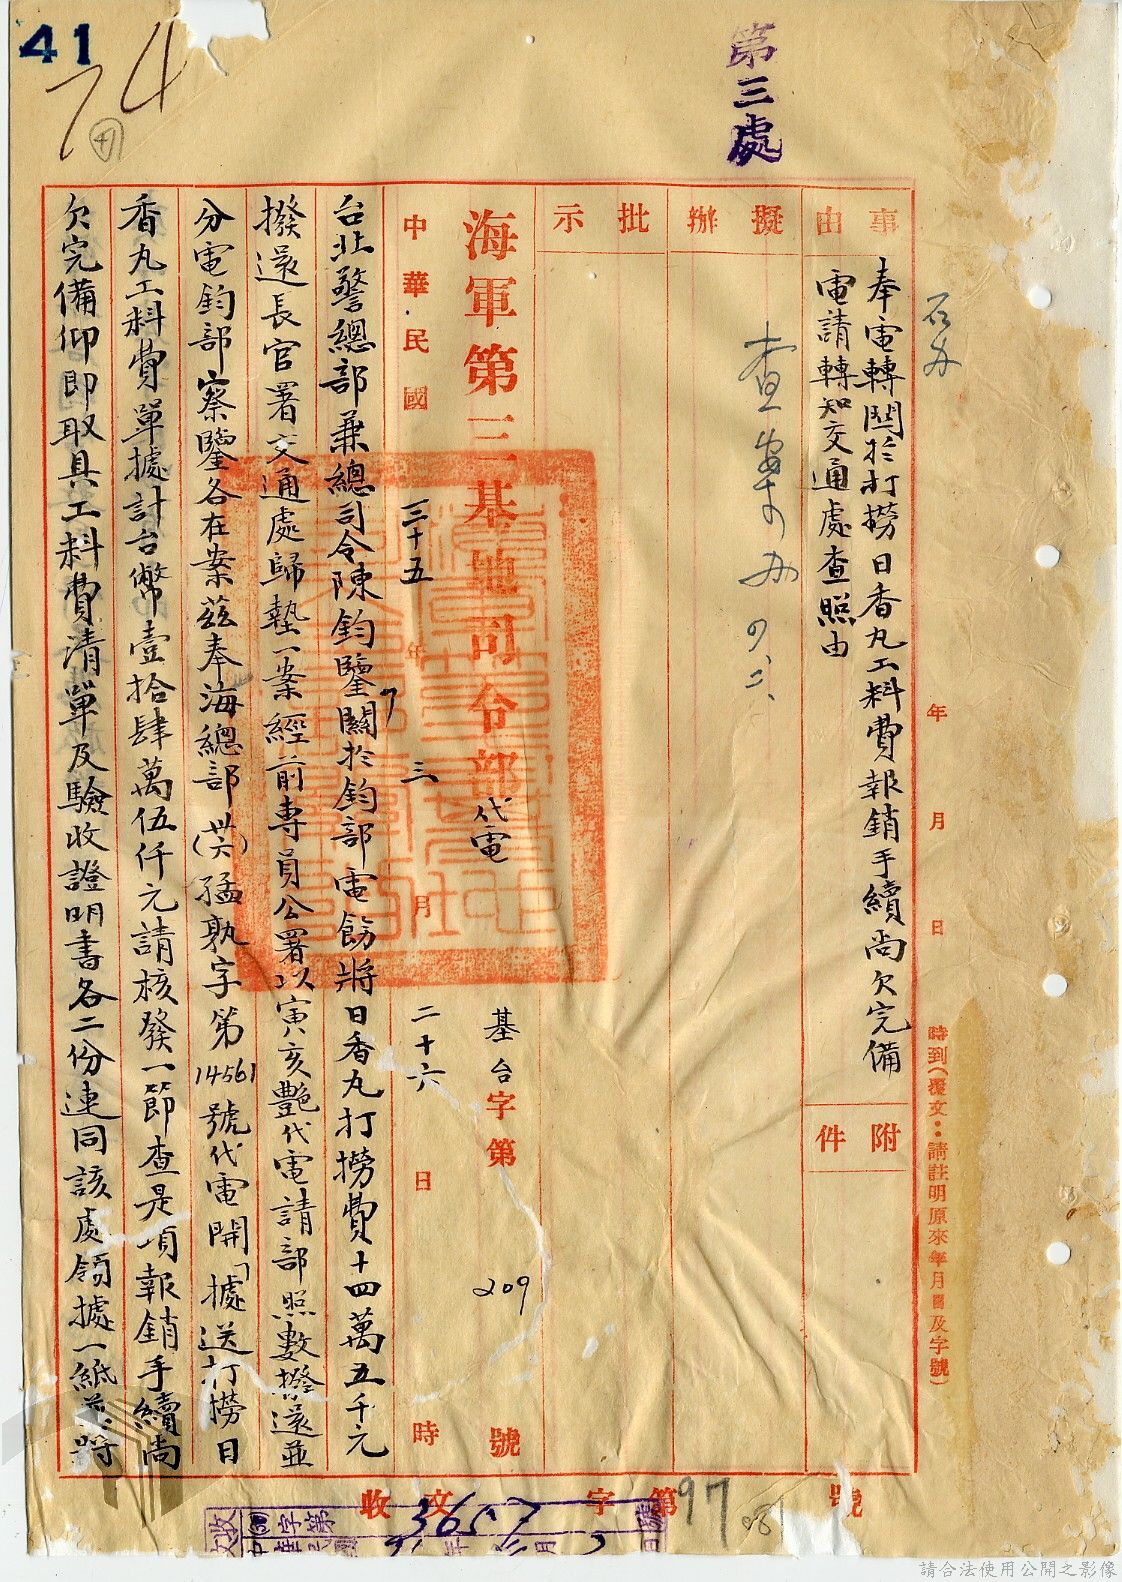 41
74
第三處
石办
年　月　日　時到(覆文：請註明原來年月日及字號)
事由
奉電轉關於打撈日香丸工料費報銷手續尚欠完備
電請轉知交通處查照由
附件
擬辦
查案办
批示
海軍第三基地司令部代電
基台字第209號
中華民國三十五年三月二十六日　時
台北警總部兼總司令陳鈞鑒關於鈞部電飭將日香丸打撈費十四萬五千元
撥還長官署交通處歸墊一案經前專員公署以寅亥艷代電請部照數撥還並
分電鈞部察鑒各在案茲奉海總部(卅六)猛孰字第14561號代電開「據送打撈日
香丸工料費單據計台幣壹拾肆萬伍仟元請核發一節查是項報銷手續尚
欠完備仰即取具工料費清單及驗收證明書各二份連同該處領據一紙
收文　字第97　號
3657
請合法使用公開之影像